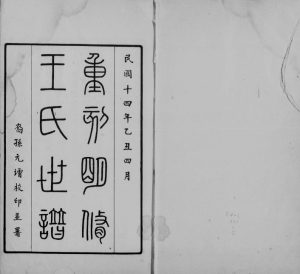 民國十四年乙丑四月
重刻明脩
王氏世譜
裔孫元增校印並署